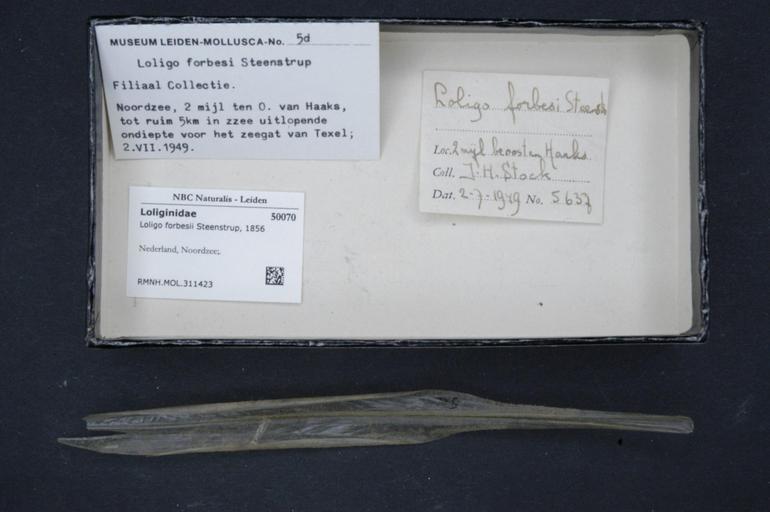 MUSEUM LEIDEN-MOLLUSCA-No. 5d
Loligo forbesi Steenstrup
Filiaal Collectie.
Noordzee, 2 mijl ten O. van Haaks,
tot ruim 5km in zzee uitlopende
ondiepte voor het zeegat van Texel;
2.VII.1949.
Loligo forbesi Steenstr
Loc. 2 mijl beoosten Haaks
Coll. J.H. Stock
Dat. 2-7-1949 No. 5637
NBC Naturalis - Leiden
Loliginidae 50070
Loligo forbesii Steenstrup, 1856
Nederland, Noordzee;.
RMNH.MOL.311423